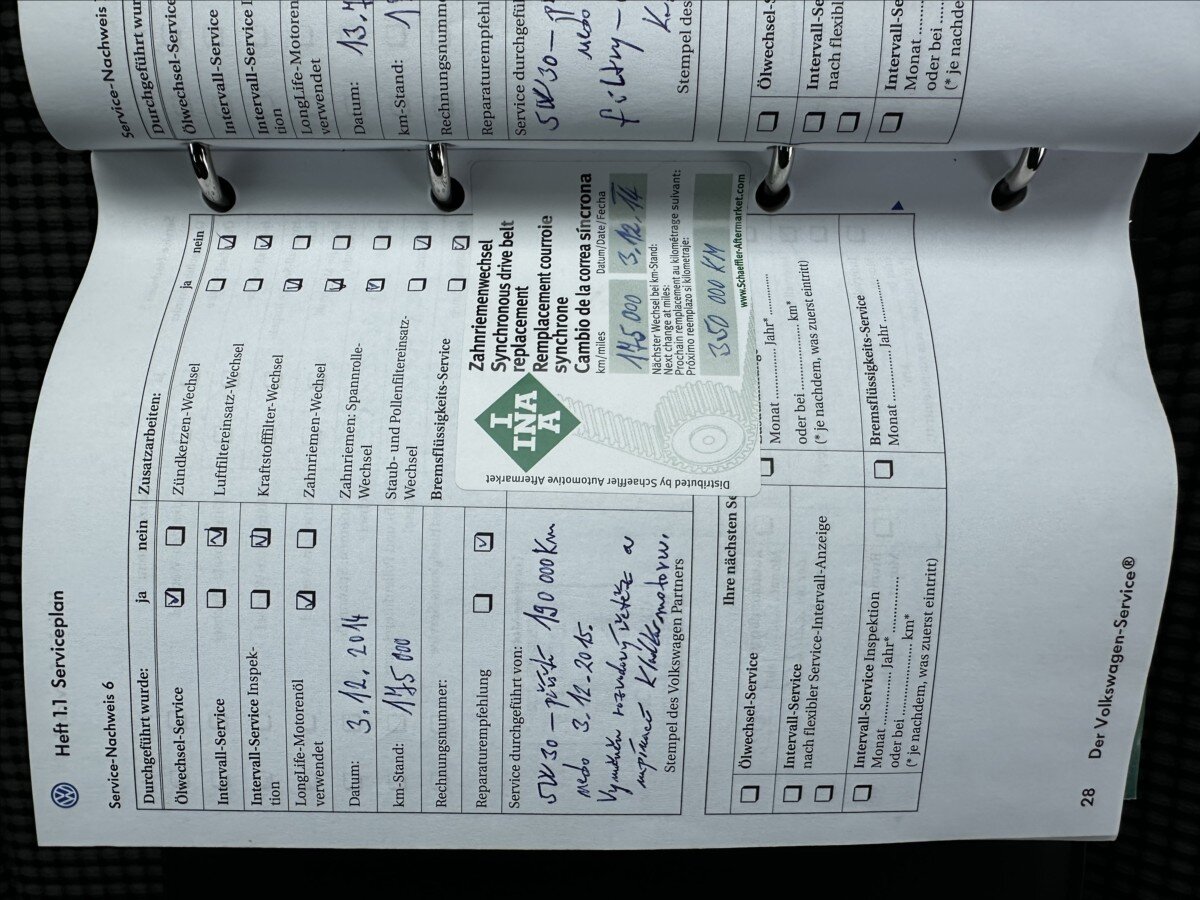 Heft 1.1 Serviceplan
Service-Nachweis 6
Durchgeführt wurde: ja nein
Ölwechsel-Service
Intervall-Service
Intervall-Service Inspek-
tion
LongLife-Motorenöl
verwendet
Datum: 3.12.2014
km-Stand: 175 000
Rechnungsnummer:
Reparaturempfehlung
Service durchgeführt von:
5W30 - příště 190 000 Km
nebo 3.12.2015.
Vyměněn rozvodový a
motoru.
Stempel des Volkswagen Partners
Zusatzarbeiten: ja nein
Zündkerzen-Wechsel
Luftfiltereinsatz-Wechsel
Kraftstofffilter-Wechsel
Zahnriemen-Wechsel
Zahnriemen: Spannrolle-
Wechsel
Staub- und Pollenfiltereinsatz-
Wechsel
Bremsflüssigkeits-Service
INA
Zahnriemenwechsel
Synchronous drive belt
replacement
Remplacement courroie
synchrone
Cambio de la correa síncrona
km/miles Datum/Date/Fecha
175 000 3.12.14
Nächster Wechsel bei km-Stand:
Next change at miles:
Prochain remplacement au kilométrage suivant:
Próximo reemplazo si kilometraje:
350 000 KM
www.Schaeffler-Aftermarket.com
Distributed by Schaeffler Automotive Aftermarket
Ihre nächsten Se
Ölwechsel-Service
Intervall-Service
nach flexibler Service-Intervall-Anzeige
Intervall-Service Inspektion
Monat ............ Jahr* ............
oder bei ............ km*
(* je nachdem, was zuerst eintritt)
Monat ............ Jahr* ............
oder bei ............ km*
(* je nachdem, was zuerst eintritt)
Bremsflüssigkeits-Service
Monat ............ Jahr ............
28
Der Volkswagen-Service®
Service-Nachweis
Durchgeführt wu
Ölwechsel-Service
Intervall-Service
Intervall-Service I
tion
LongLife-Motoren
verwendet
Datum: 13.7
km-Stand: 1
Rechnungsnummer
Reparaturempfehl
Service durchgefü
5W30 - p
nebo
filtry -
Stempel des
Ölwechsel-S
Intervall-Se
nach flexibl
Intervall-Se
Monat
oder bei
(* je nachde